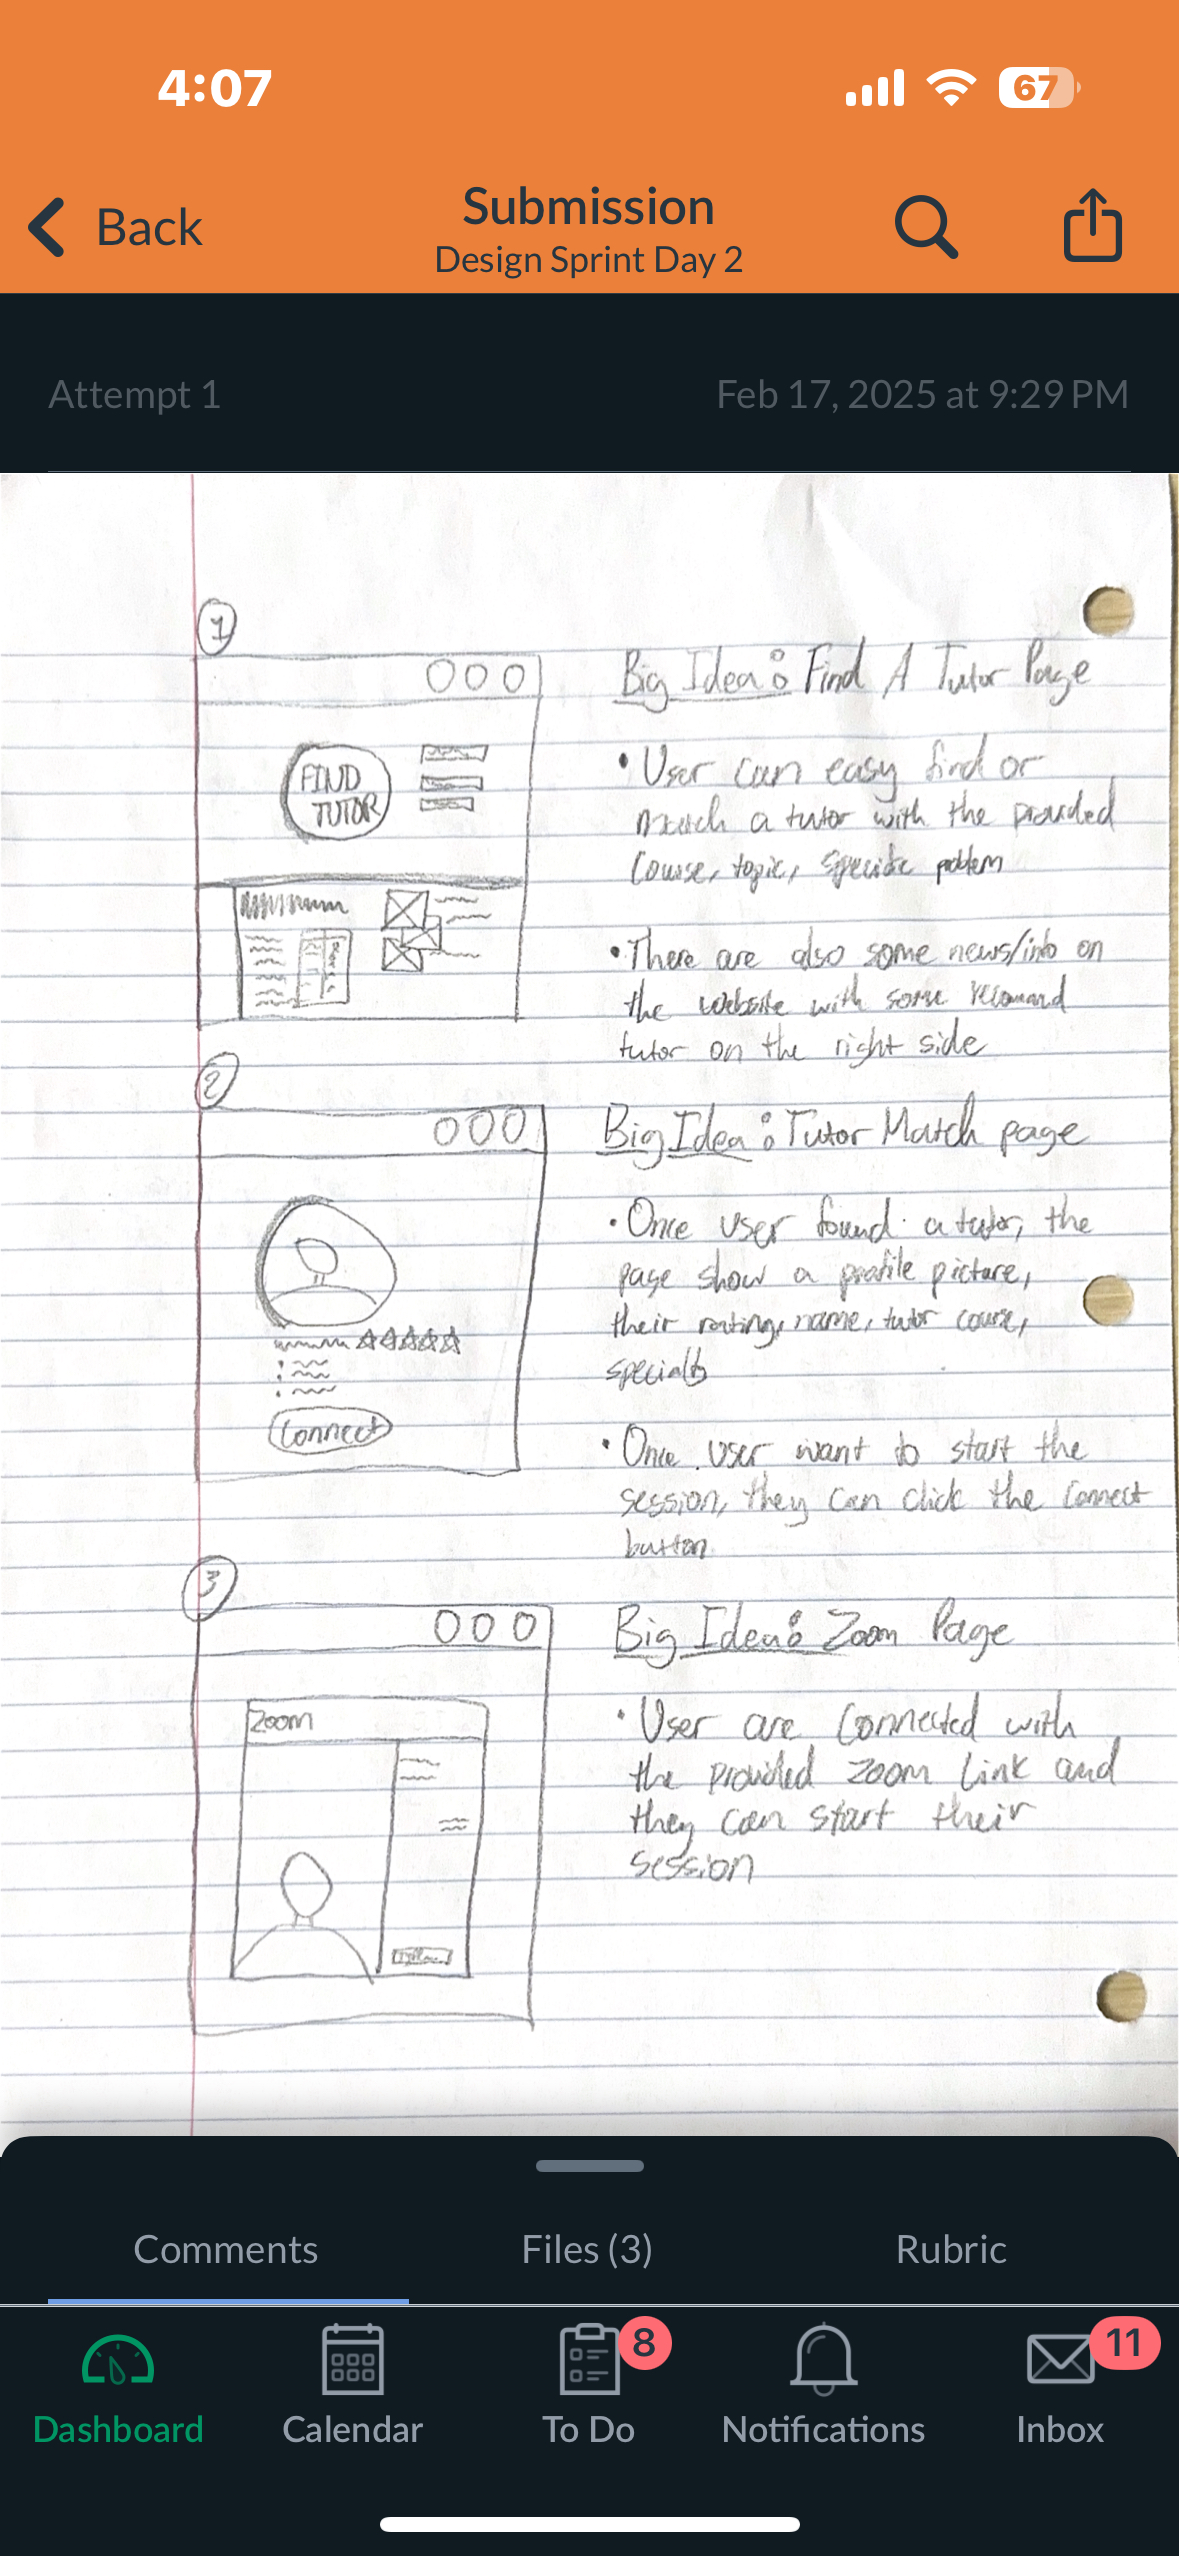 4:07
67
Back
Submission
Design Sprint Day 2
Attempt 1
Feb 17, 2025 at 9:29 PM
1
Big Idea: Find A Tutor Page
FIND
TUTOR
• User can easy find or
match a tutor with the provided
course, topic, specific problem
• There are also some news/info on
the website with some recomand
tutor on the right side
2
Big Idea: Tutor Match page
• Once user found a tutor, the
page show a profile picture,
their rating, name, tutor course,
specialty
Connect
• Once user want to start the
session, they can click the connect
button.
3
Big Idea: Zoom Page
Zoom
• User are connected with
the provided zoom link and
they can start their
session
Comments
Files (3)
Rubric
8
11
Dashboard
Calendar
To Do
Notifications
Inbox